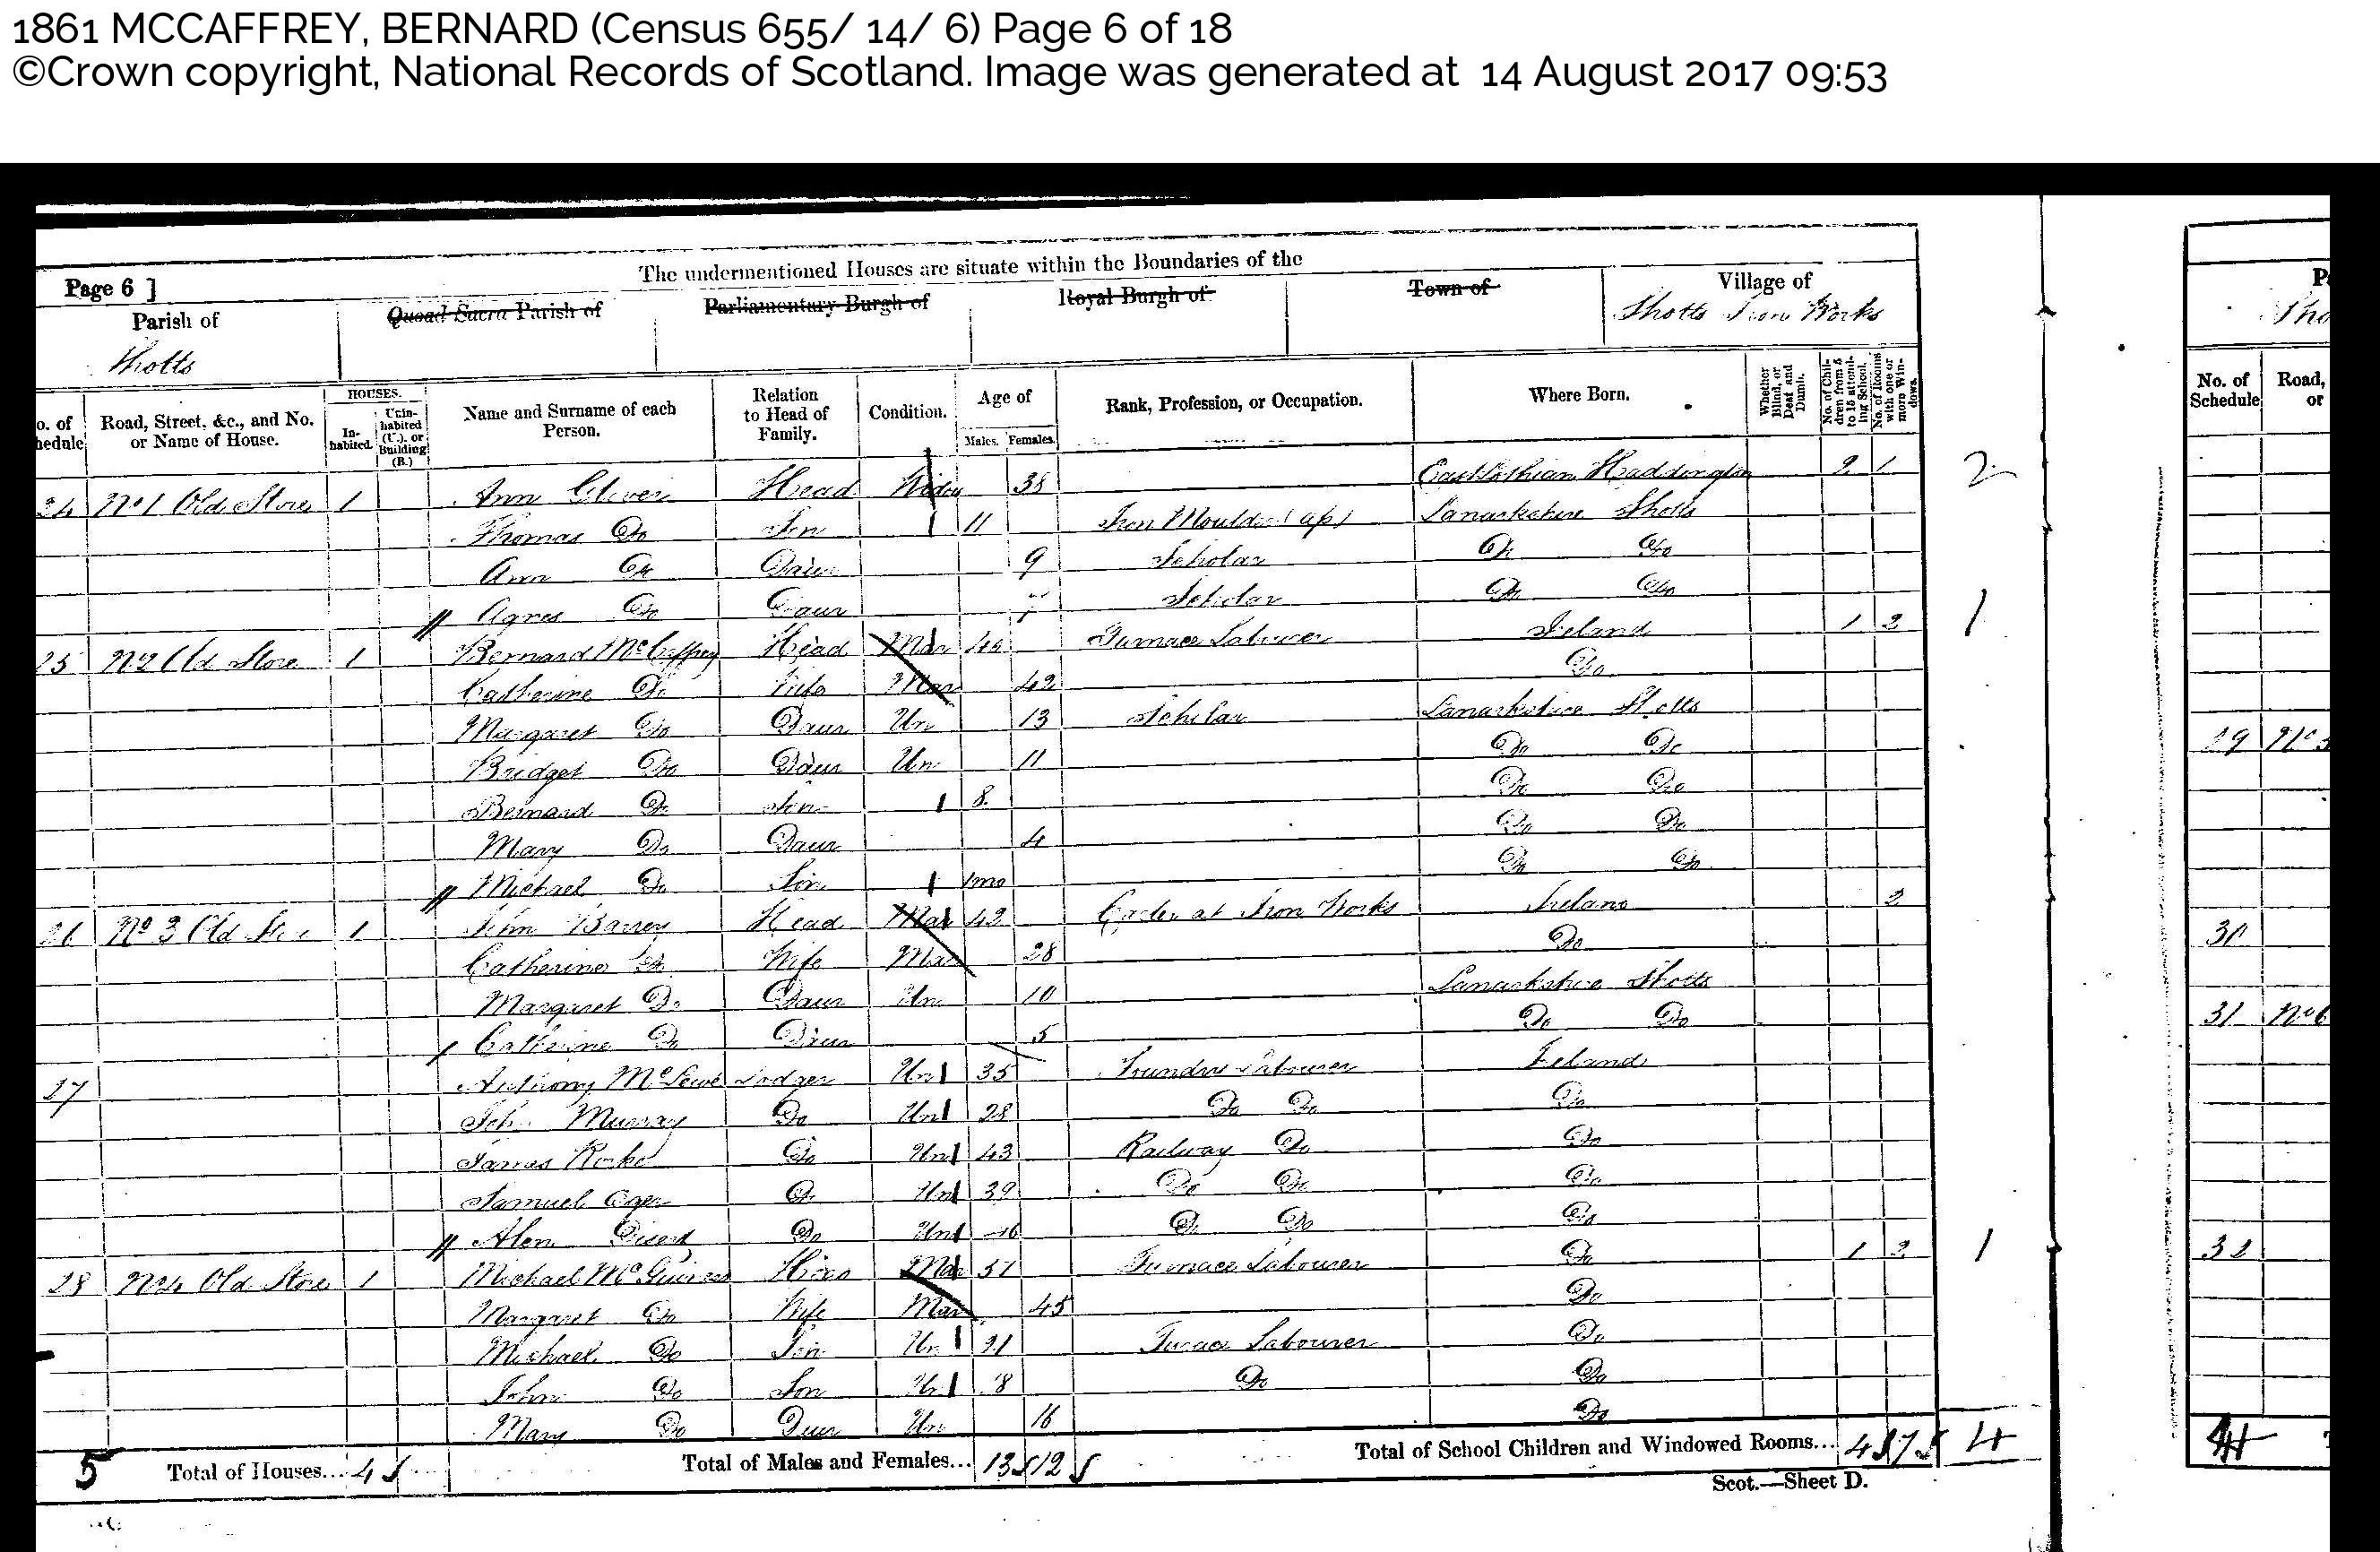 1861 MCCAFFREY, BERNARD (Census 655/ 14/ 6) Page 6 of 18
©Crown copyright, National Records of Scotland. Image was generated at 14 August 2017 09:53
The undermentioned Houses are situate within the Boundaries of the
Page 6 ]
Parish of Quoad Sacra Parish of Parliamentary Burgh of Royal Burgh of Town of Village of
Shotts Shotts Iron Works
o. of hedule Road, Street, &c., and No. or Name of House. HOUSES. In-habited. Unin-habited (U.), or Building (B.) Name and Surname of each Person. Relation to Head of Family. Condition. Age of Males. Females. Rank, Profession, or Occupation. Where Born. Whether Blind, or Deaf and Dumb. No. of Chil-dren from 5 to 15 attend-ing School. No. of Rooms with one or more Win-dows.
24 No 1 Old Store 1 Ann Head Widow 38 East Lothian Haddington 2 1 2
Thomas Do Son 11 Iron Moulder (ap) Lanarkshire Shotts
Ann Do Daur 9 Scholar Do Do
Agnes Do Daur Scholar Do Do
25 No 2 Old Store 1 Bernard McCaffrey Head Mar Furnace Labourer Ireland 1 2 1
Catherine Do Wife Mar 42 Do
Margaret Do Daur Un 13 Scholar Lanarkshire Shotts
Bridget Do Daur Un 11 Do Do
Bernard Do Son 8 Do Do
Mary Do Daur 4 Do Do
Michael Do Son 1mo Do Do
26 No 3 Old Store 1 John Head Mar 42 at Iron Works Ireland 2
Catherine Do Wife Mar 28 Do
Margaret Do Daur Un 10 Lanarkshire Shotts
Catherine Do Daur 5 Do Do
27 Anthony Lodger Un 35 Foundry Labourer Ireland
John Murray Do Un 28 Do Do Do
James Do Un 43 Railway Do Do
Samuel Do Un 39 Do Do Do
Do Un Do Do Do
28 No 4 Old Store 1 Michael McGuiness Head Mar 51 Furnace Labourer Do 1 2 1
Margaret Do Wife Mar 45 Do
Michael Do Son Un 21 Furnace Labourer Do
John Do Son Un 18 Do Do
Mary Do Daur Un 16 Do
5 Total of Houses... 4 Total of Males and Females... 13 12 Total of School Children and Windowed Rooms... 4 7 4
Scot.—Sheet D.
No. of Schedule Road, or
29
30
31 No 6
32